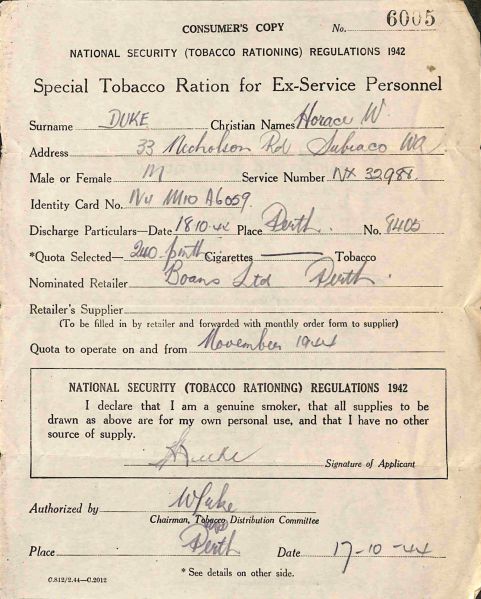 CONSUMER'S COPY No. 6005
NATIONAL SECURITY (TOBACCO RATIONING) REGULATIONS 1942
Special Tobacco Ration for Ex-Service Personnel
Surname DUKE Christian Names Horace W.
Address 33 Nicholson Rd Subiaco WA
Male or Female M Service Number NX 32988.
Identity Card No. M10 A6059.
Discharge Particulars—Date 18.10.44 Place Perth. No. 8405
*Quota Selected— 240 p mth Cigarettes Tobacco
Nominated Retailer Boans Ltd Perth.
Retailer's Supplier
(To be filled in by retailer and forwarded with monthly order form to supplier)
Quota to operate on and from November 1944
NATIONAL SECURITY (TOBACCO RATIONING) REGULATIONS 1942
I declare that I am a genuine smoker, that all supplies to be
drawn as above are for my own personal use, and that I have no other
source of supply.
Signature of Applicant
Authorized by
Chairman, Tobacco Distribution Committee
Place Perth Date 17-10-44
* See details on other side.
C.812/2.44—C.2012